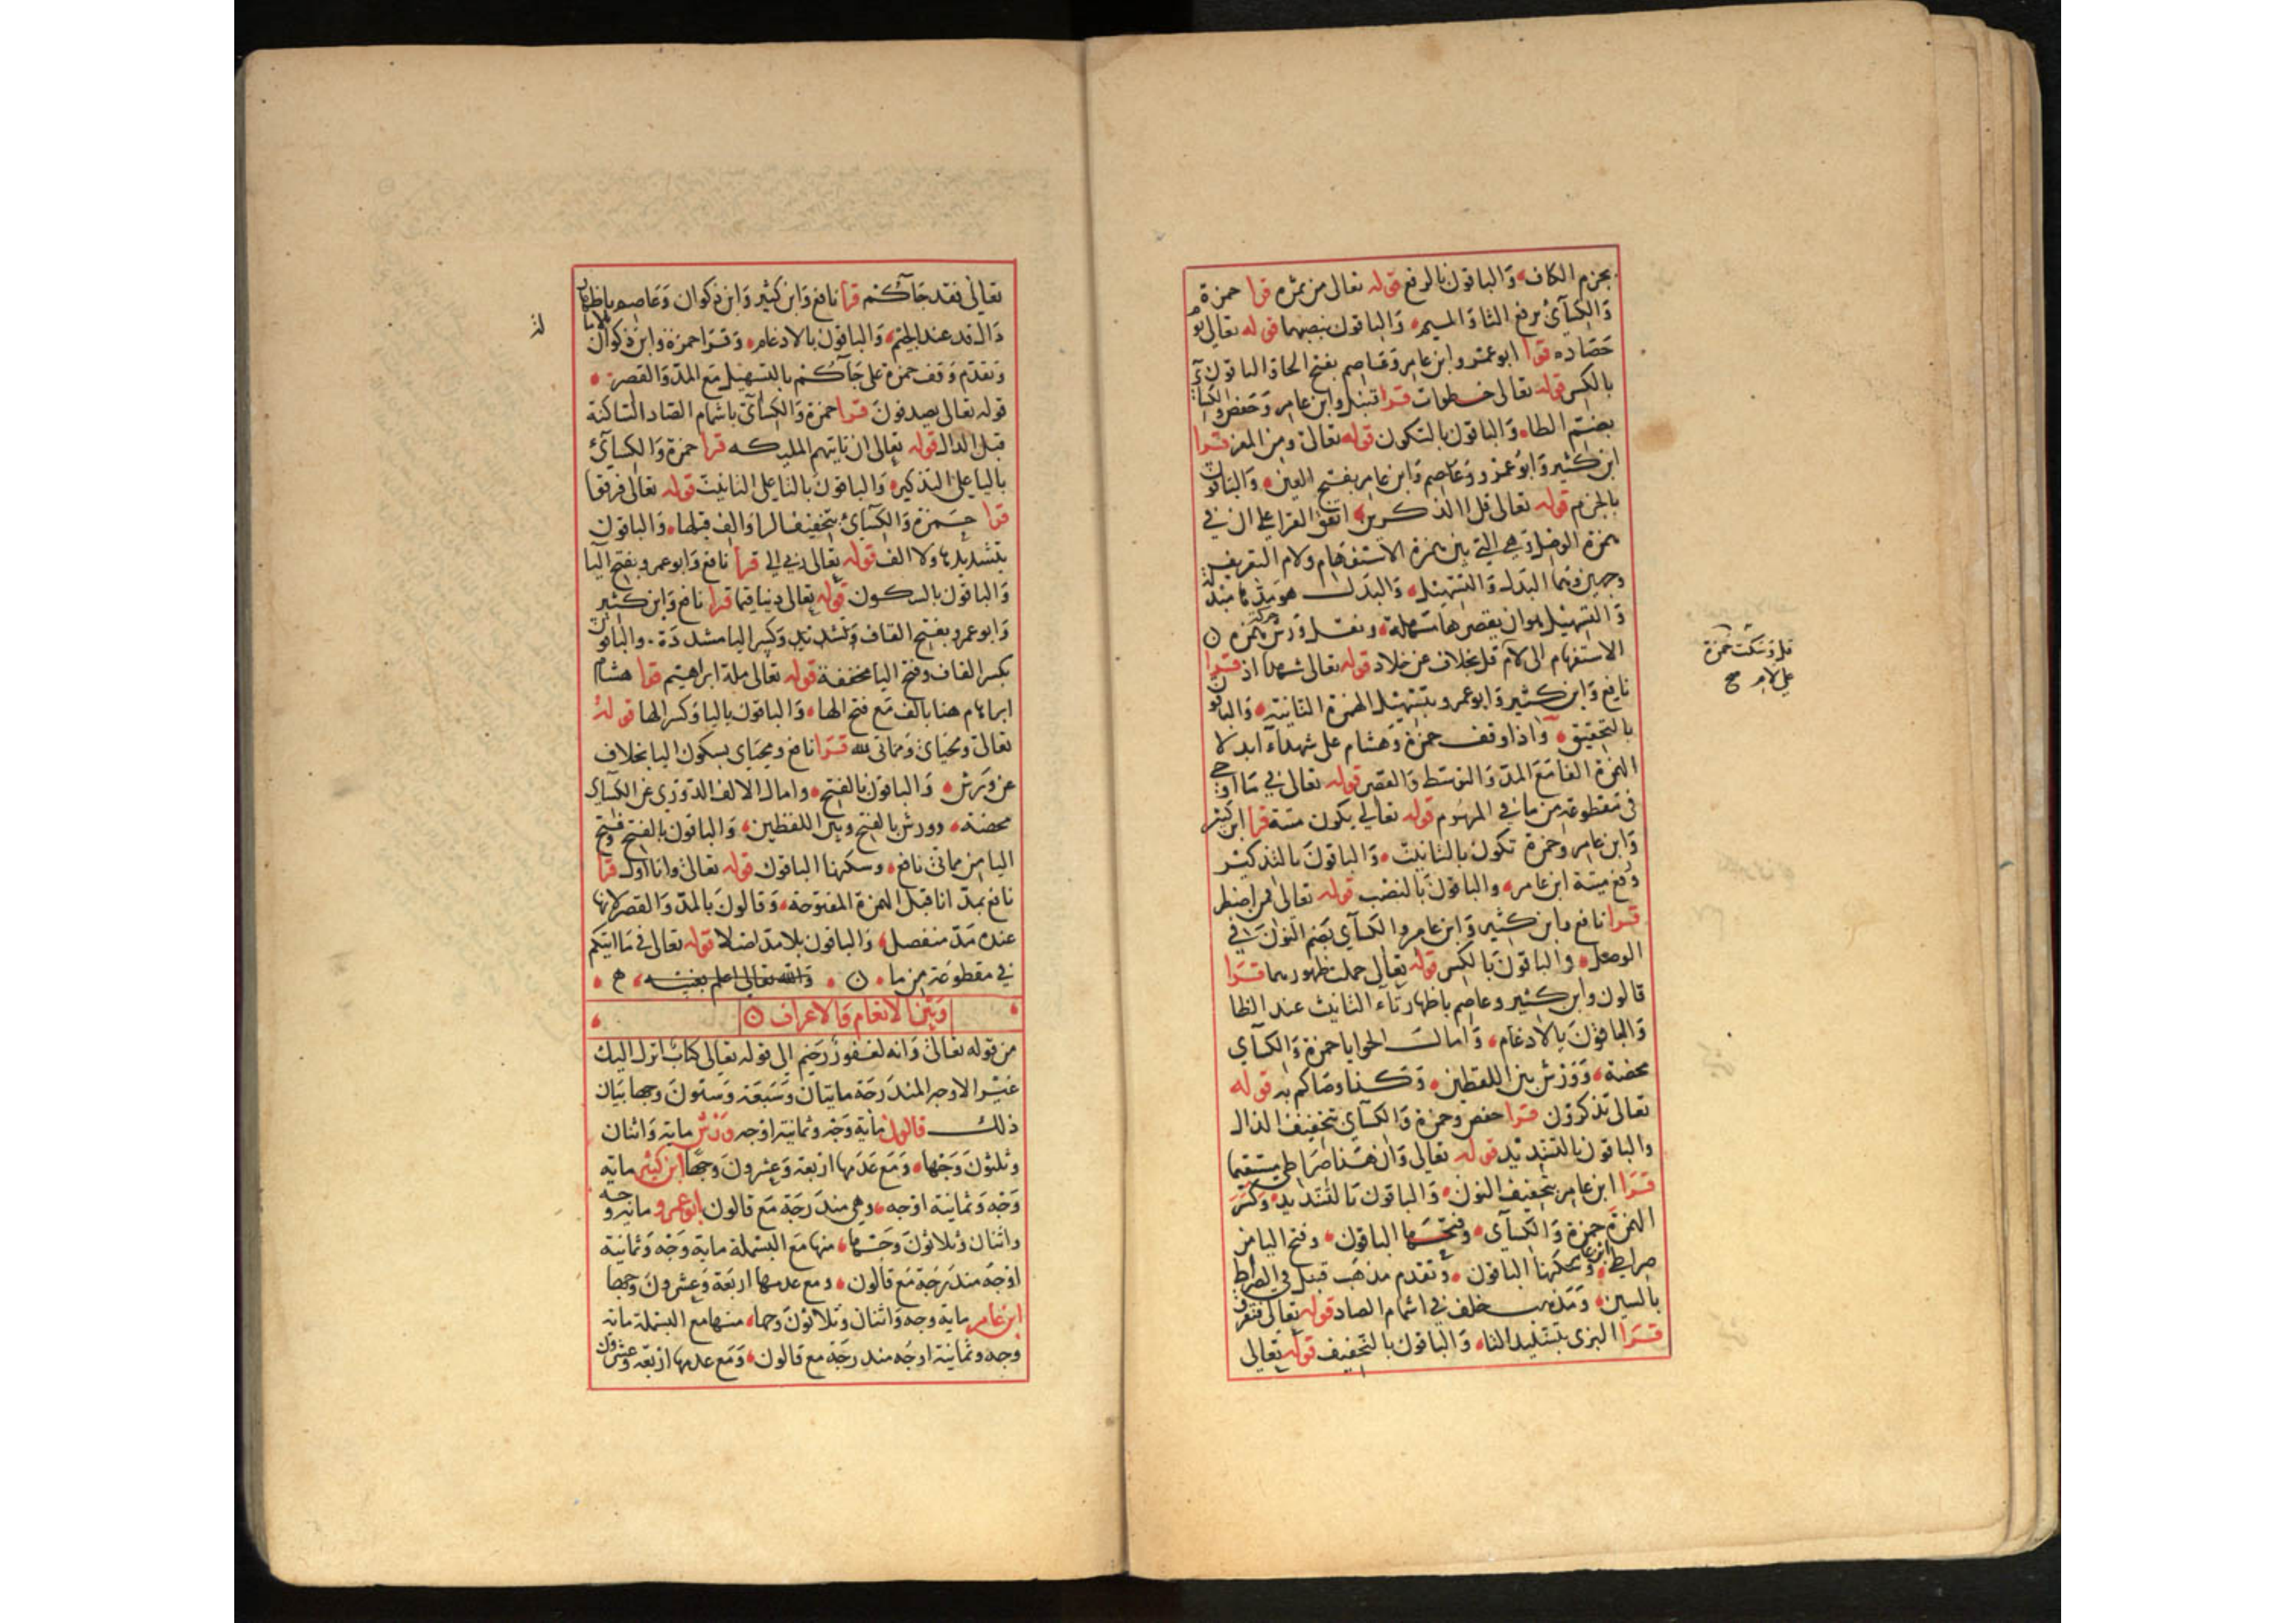 بجزم الكاف والباقون بالرفع قوله تعالى من ثمره قرا حمزة
والكسآئ برفع الثا والميم والباقون بنصبهما قوله تعالى يوم
حصاده قرا ابوعمرو وابن عامر وعاصم بفتح الحا والباقون
بالكسر قوله تعالى خطوات قرا قنبل وابن عامر وحفص والكسآئ
بضم الطا والباقون بالسكون قوله تعالى ومن المعز قرا
ابن كثير وابو عمرو وعاصم وابن عامر بفتح العين والباقون
بالجزم قوله تعالى قل االذكرين اتفق القرا على ان في
همزة الوصل وهي التي بين همزة الاستفهام ولام التعريف
وجهين وهما البدل والتسهيل والبدل هو
والتسهيل هو ان يقصرها مسهلة ونقل ورش حركة همزة
الاستفهام الى لام قل بخلاف عن خلاد قوله تعالى شهدا اذ قرا
نافع وابن كثير وابوعمرو بتسهيل الهمزة الثانية والباقون
بالتحقيق واذا وقف حمزة وهشام على شهدآء ابدلا
الهمزة الفا مع المد والتوسط والقصر قوله تعالى في ما اوحي
في مقطوعة من ما في المرسوم قوله تعالى يكون ميتة قرا ابن كثير
وابن عامر وحمزة تكون بالتانيث والباقون بالتذكير
ورفع ميتة ابن عامر والباقون بالنصب قوله تعالى فمن اضطر
قرا نافع وابن كثير وابن عامر والكسآي بضم النون في
الوصل والباقون بالكسر قوله تعالى حملت ظهورهما قرا
قالون وابن كثير وعاصم باظهار تآء التانيث عند الظا
والباقون بالادغام وامالت الحوايا حمزة والكسآي
محضة وورش بين اللفظين وكذا وصاكم به قوله
تعالى تذكرون قرا حفص وحمزة والكسآي بتخفيف الذال
والباقون بالتشديد قوله تعالى وان هذا صراطي مستقيما
قرا ابن عامر بتخفيف النون والباقون بالتشديد وكسر
الهمزة حمزة والكسآي وفتحها الباقون وفتح اليا من
صراطي ابن عامر وسكنها الباقون وتقدم مذهب قنبل في الصراط
بالسين ومذهب خلف في اشمام الصاد قوله تعالى فتفرق
قرا البزى بتشديد التا والباقون بالتخفيف قوله تعالى
قلت وسكت حمزة
على لام صح
تعالى فقد جآءكم قرا نافع وابن كثير وابن ذكوان وعاصم باظهار
دال قد عند الجيم والباقون بالادغام وقرا حمزة وابن ذكوان بالامالة
وتقدم وقف حمزة على جآءكم بالتسهيل مع المد والقصر
قوله تعالى يصدفون قرا حمزة والكسآئ باشمام الصاد الساكنة
قبل الدال قوله تعالى ان تاتيهم المليكه قرا حمزة والكسآئ
باليا على التذكير والباقون بالتا على التانيث قوله تعالى فرقوا
قرا حمزة والكسآئ بتخفيف الرا والف قبلها والباقون
بتشديدها ولا الف قوله تعالى ربي الى قرا نافع وابوعمرو بفتح اليا
والباقون بالسكون قوله تعالى دينا قيما قرا نافع وابن كثير
وابوعمرو بفتح القاف وتشديد وكسر اليا مشددة والباقون
بكسر القاف وفتح اليا مخففة قوله تعالى ملة ابراهيم قرا هشام
ابراهام هنا بالف مع فتح الها والباقون باليا وكسر الها قوله
تعالى ومحياى ومماتى لله قرا نافع ومحياى بسكون اليا بخلاف
عن ورش والباقون بالفتح وامال الالف الدوري عن الكسآى
محضة وورش بالفتح وبين اللفظين والباقون بالفتح وفتح
اليا من مماتى نافع وسكنها الباقون قوله تعالى وانا اول قرا
نافع بمد انا قبل الهمزة المفتوحة وقالون بالمد والقصر لانها
عنده مد منفصل والباقون بلا مد اصلا قوله تعالى في ما اتيكم
في مقطوعة من ما والله تعالى اعلم بغيبه
وبين الانعام والاعراف
من قوله تعالى وانه لغفور رحيم الى قوله تعالى كتاب انزل اليك
غير الاوجه المندرجة مايتان وسبعة وستون وجها بيان
ذلك قالون ماية وجه وثمانية اوجه ورش ماية واثنان
وثلثون وجها ومع عدمها اربعة وعشرون وجها ابن كثير ماية
وجه وثمانية اوجه وهي مندرجة مع قالون ابوعمرو ماية وجه
واثنان وثلاثون وجها منها مع البسملة ماية وجه وثمانية
اوجه مندرجة مع قالون ومع عدمها اربعة وعشرون وجها
ابن عامر ماية وجه واثنان وثلاثون وجها منها مع البسملة ماية
وجه وثمانية اوجه مندرجة مع قالون ومع عدمها اربعة وعشرون